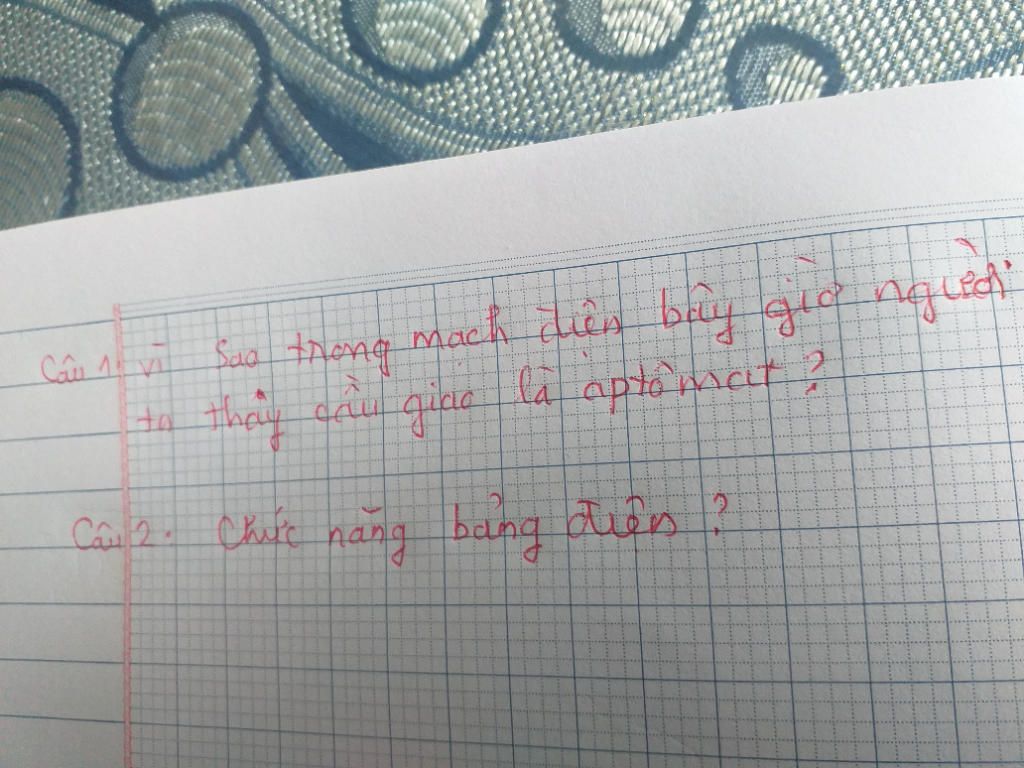 Câu 1: vì sao trong mạch điện bây giờ người
ta thay cầu giao là aptômat?
Câu 2. Chức năng bảng điện?